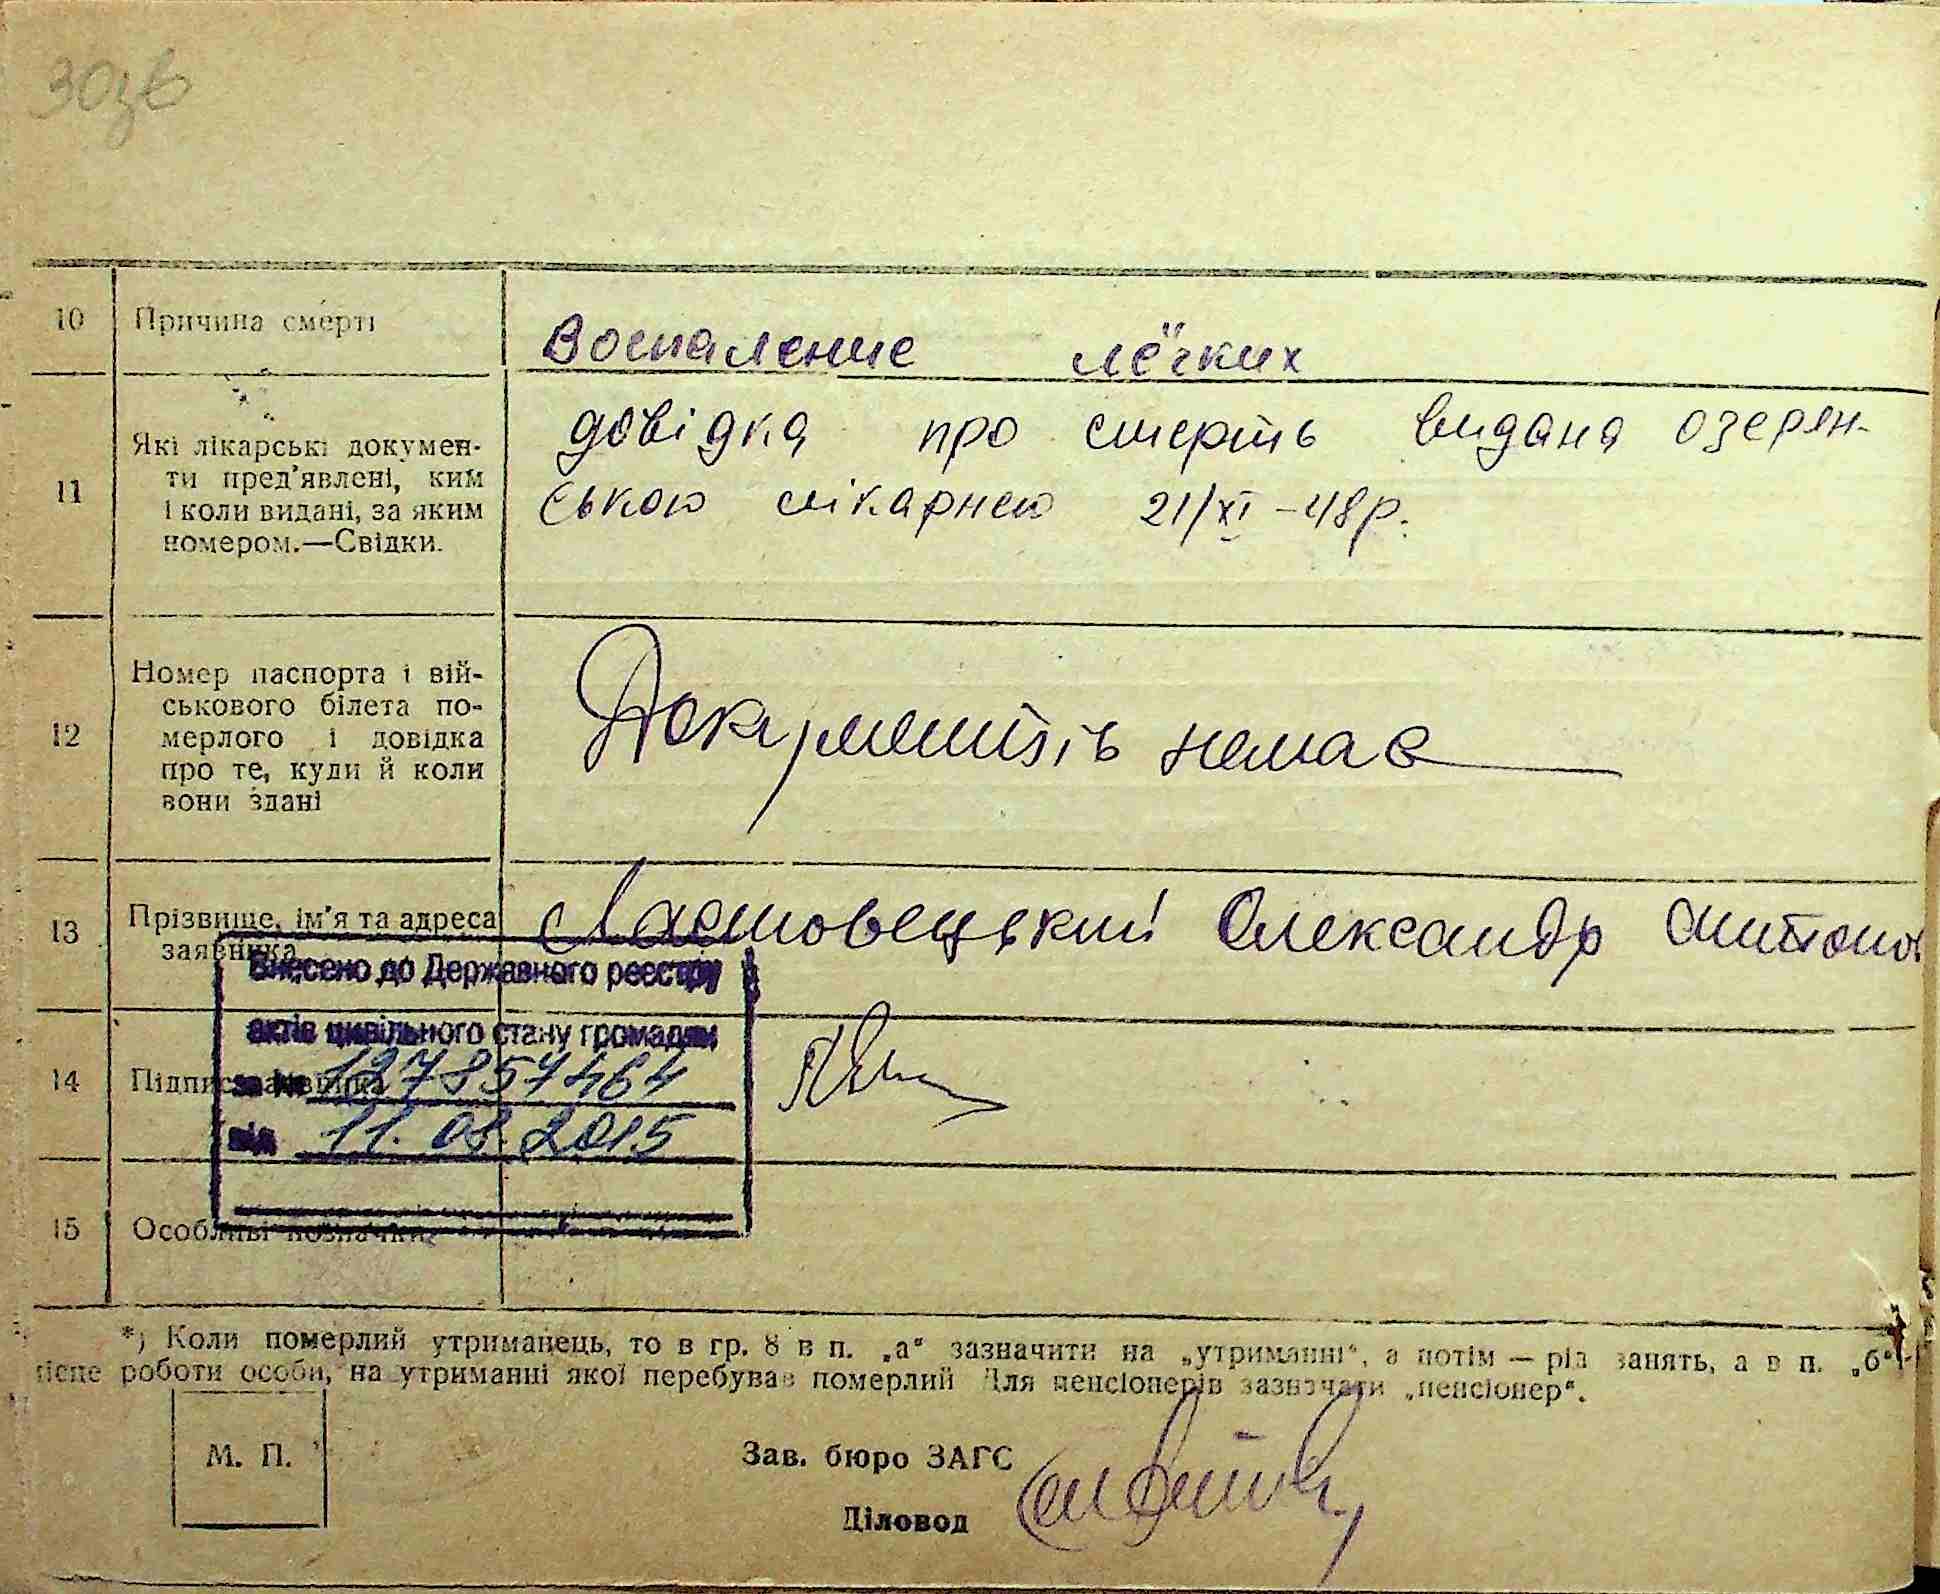 30зв
10 Причина смерті Воспаление лёгких
11 Які лікарські докумен-
ти пред'явлені, ким
і коли видані, за яким
номером.—Свідки.
довідка про смерть видана озерян-
ською лікарнею 21/XI-48р.
12 Номер паспорта і вій-
ськового білета по-
мерлого і довідка
про те, куди й коли
вони здані
Документів немає
13 Прізвище, ім'я та адреса
заявника
Ластовецький Олександр Антонов
Внесено до Державного реєстру
актів цивільного стану громадян
за № 127857464
від 11.08.2015
14 Підпис заявника
15 Особливі позначки
*) Коли померлий утриманець, то в гр. 8 в п. „а“ зазначити на „утриманні“, а потім — рід занять, а в п. „б“-
місце роботи особи, на утриманні якої перебував померлий Для пенсіонерів зазначати „пенсіонер“.
М. П.
Зав. бюро ЗАГС
Діловод